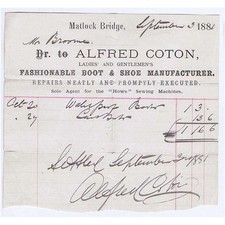 Matlock Bridge, September 3 1881
Mr Broome
Dr. to ALFRED COTON,
LADIES' AND GENTLEMEN'S
FASHIONABLE BOOT & SHOE MANUFACTURER.
REPAIRS NEATLY AND PROMPTLY EXECUTED.
Sole Agent for the "Howe" Sewing Machines.
Oct 2 Waterproof Boots 1 3
" 29 13 6
1 16 6
Settled September 3 1881
Alfred Coton